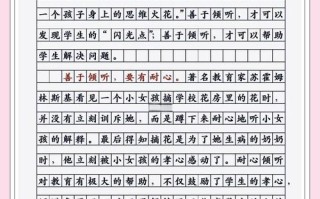 一个孩子身上的思维火花。”善于倾听，才可以
发现学生的“闪光点”；善于倾听，才可以帮助
学生解决问题。
善于倾听，要有耐心。著名教育家苏霍姆
林斯基看见一个小女孩摘学校花房里的花时，
并没有立刻训斥她，而是蹲下来耐心地听小女
孩的解释。最后得知摘花是为了她生病的奶奶
时，他立刻被小女孩的孝心感动了。耐心倾听
对教育有极大的帮助，不仅鼓励了学生的孝心，